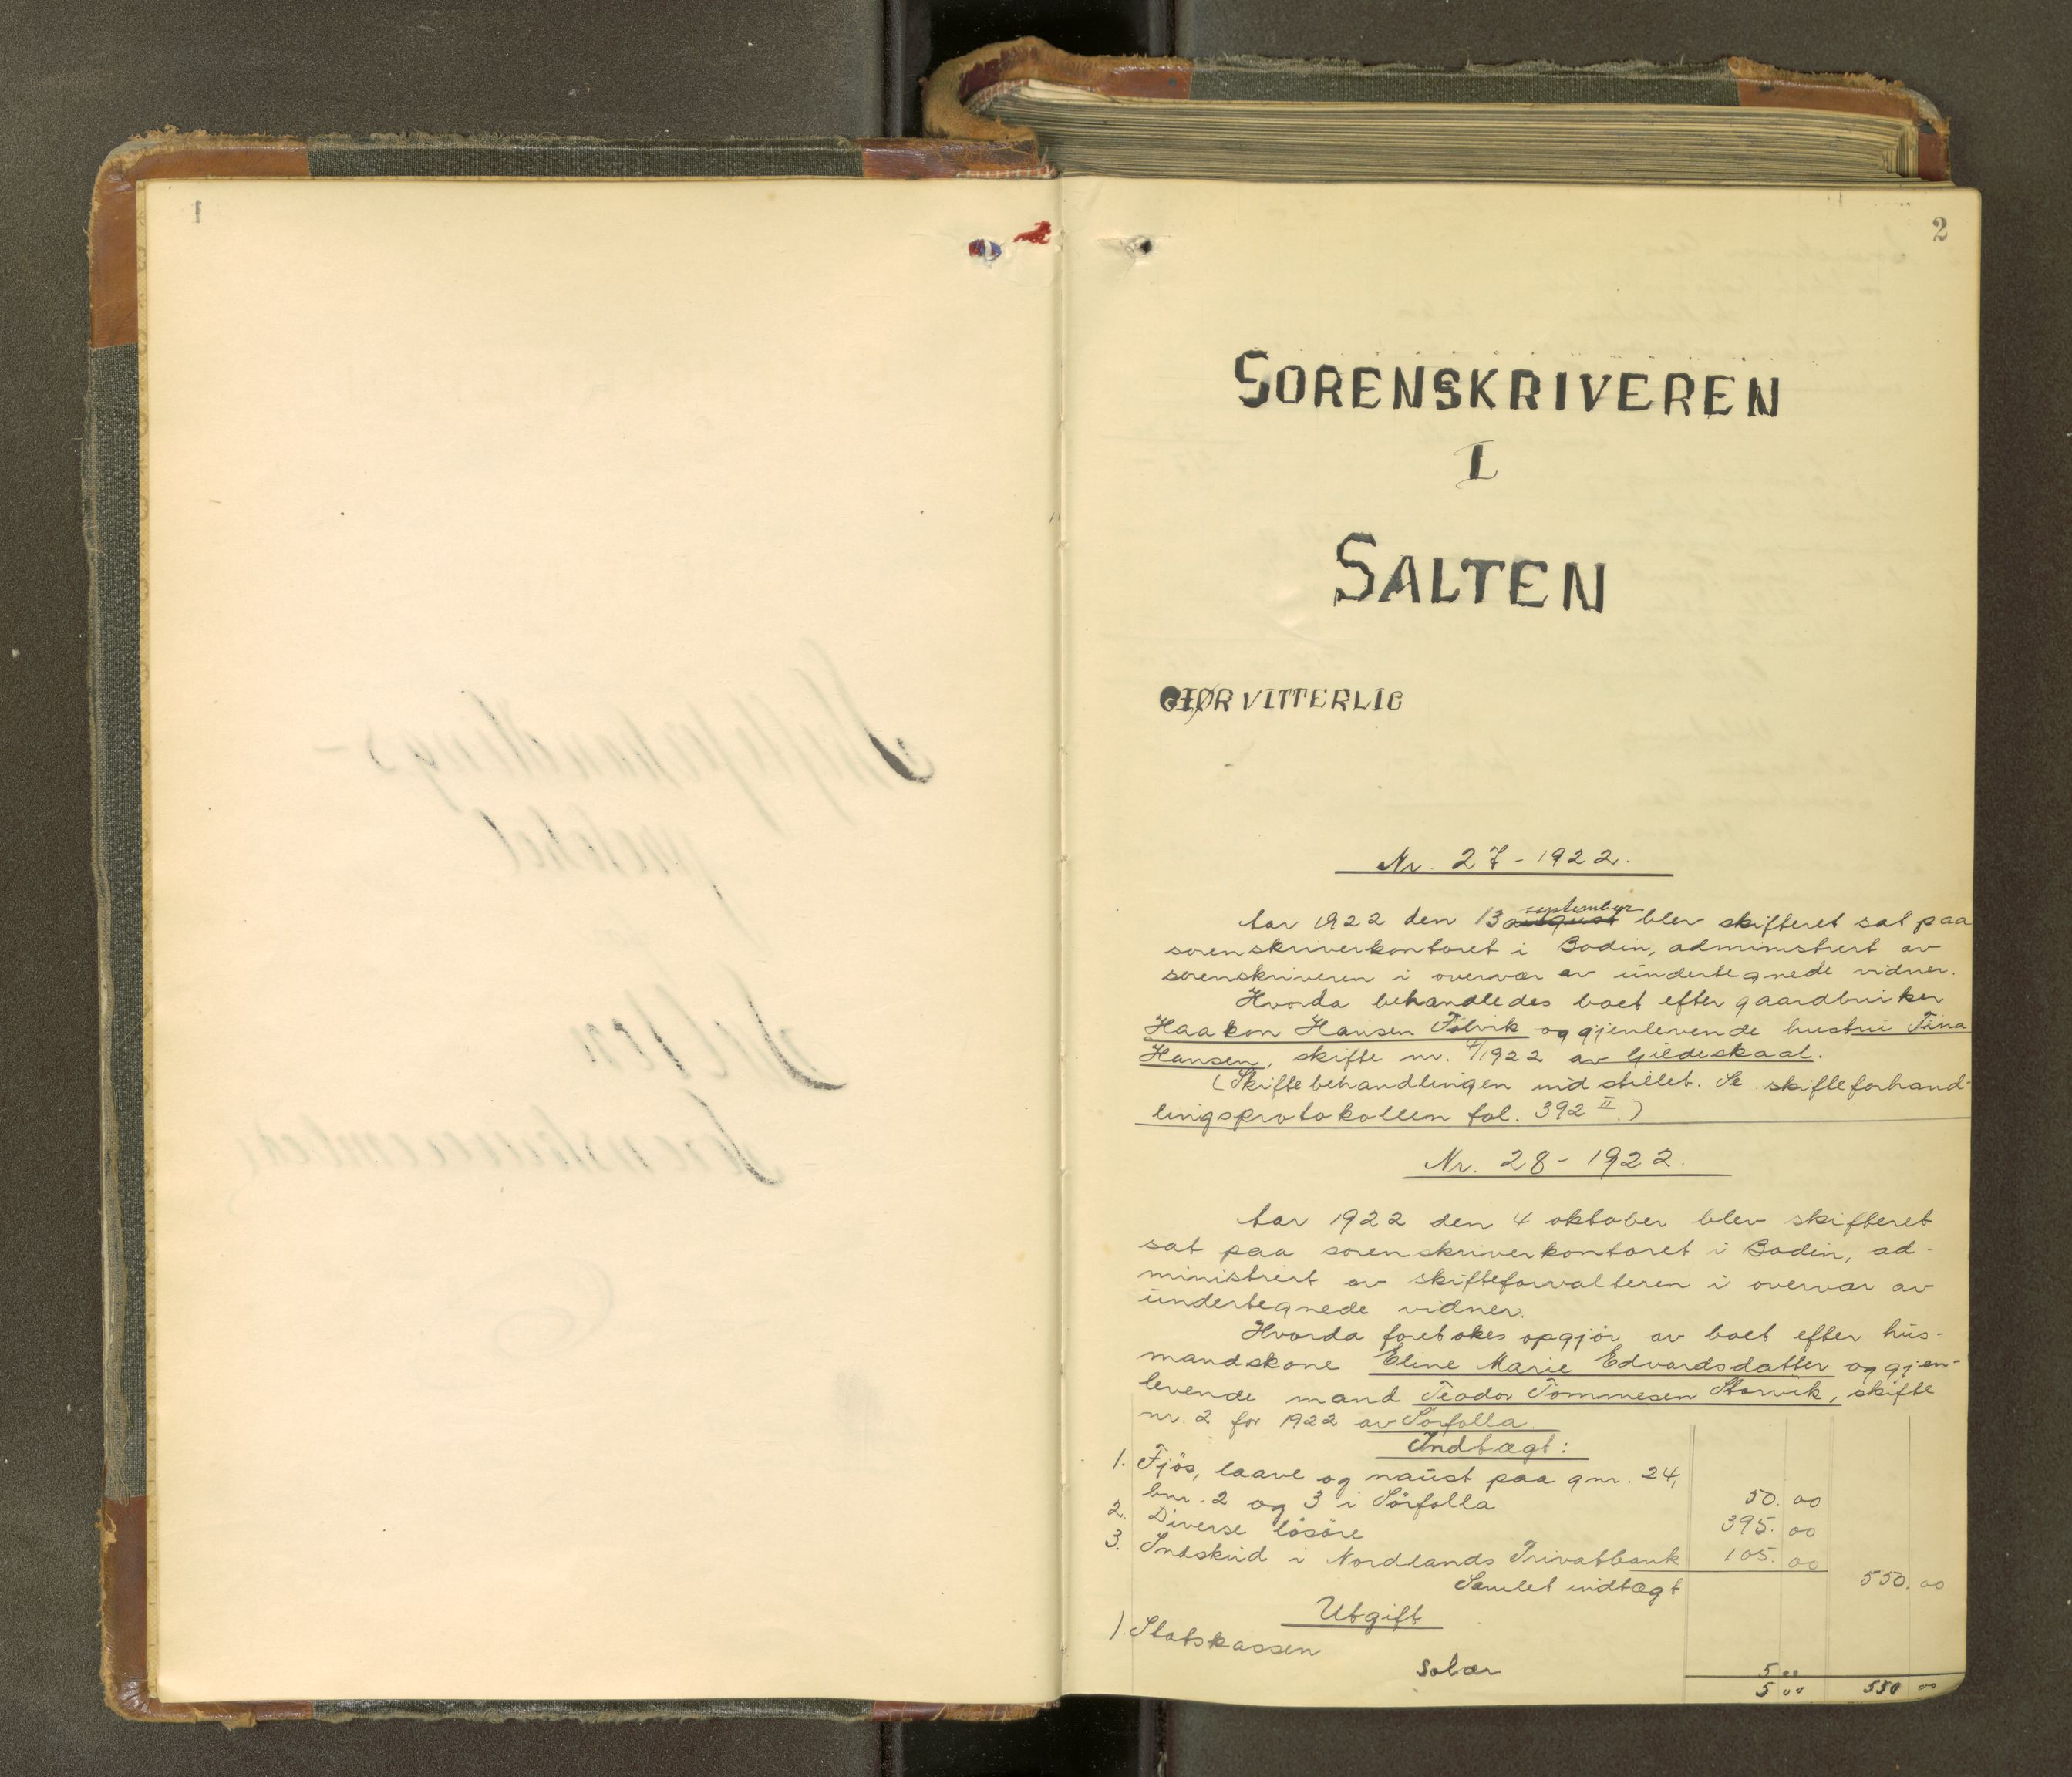 1
2
SORENSKRIVEREN
I
SALTEN
GJØR VITTERLIG
Nr. 27 - 1922.
Aar 1922 den 13 august september blev skifteret sat paa
sorenskriverkontoret i Bodin, administrert av
sorenskriveren i overvær av undertegnede vidner.
Hvorda behandledes boet efter gaardbruker
Haakon Hansen Tølvik og gjenlevende hustru Tina
Hansen, skifte nr. 4/1922 av Gildeskaal.
(Skiftebehandlingen indstillet. Se skifteforhand-
lingsprotokollen fol. 392 II.)
Nr. 28 - 1922.
Aar 1922 den 4 oktober blev skifteret
sat paa sorenskriverkontoret i Bodin, ad-
ministrert av skifteforvalteren i overvær av
undertegnede vidner.
Hvorda foretokes opgjør av boet efter hus-
mandskone Eline Marie Edvardsdatter og gjen-
levende mand Teodor Tommesen Storvik, skifte
nr. 2 for 1922 av Sørfolla
Indtægt:
1. Fjös, laave og naust paa gnr. 24,
bnr. 2 og 3 i Sörfolla 50. 00
2. Diverse lösöre 395. 00
3. Indskud i Nordlands Privatbank 105. 00
Samlet indtægt 550. 00
Utgift
1. Statskassen
Salær 5 00
5 00 550 00
Skifteforhandlings-
protokol
Salten
Sorenskriverembede